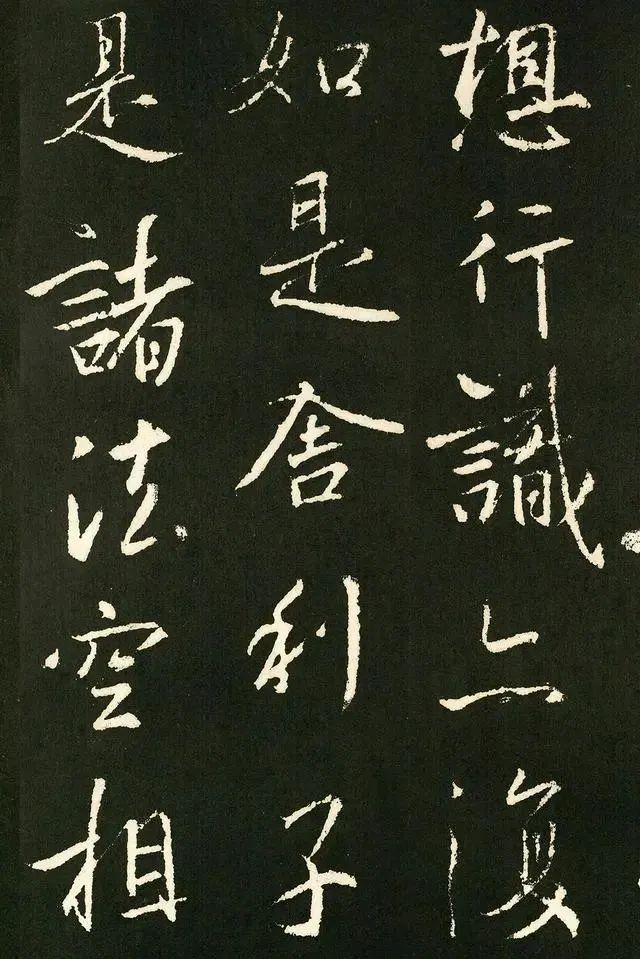 想行識亦復
如是舎利子
是諸法空相